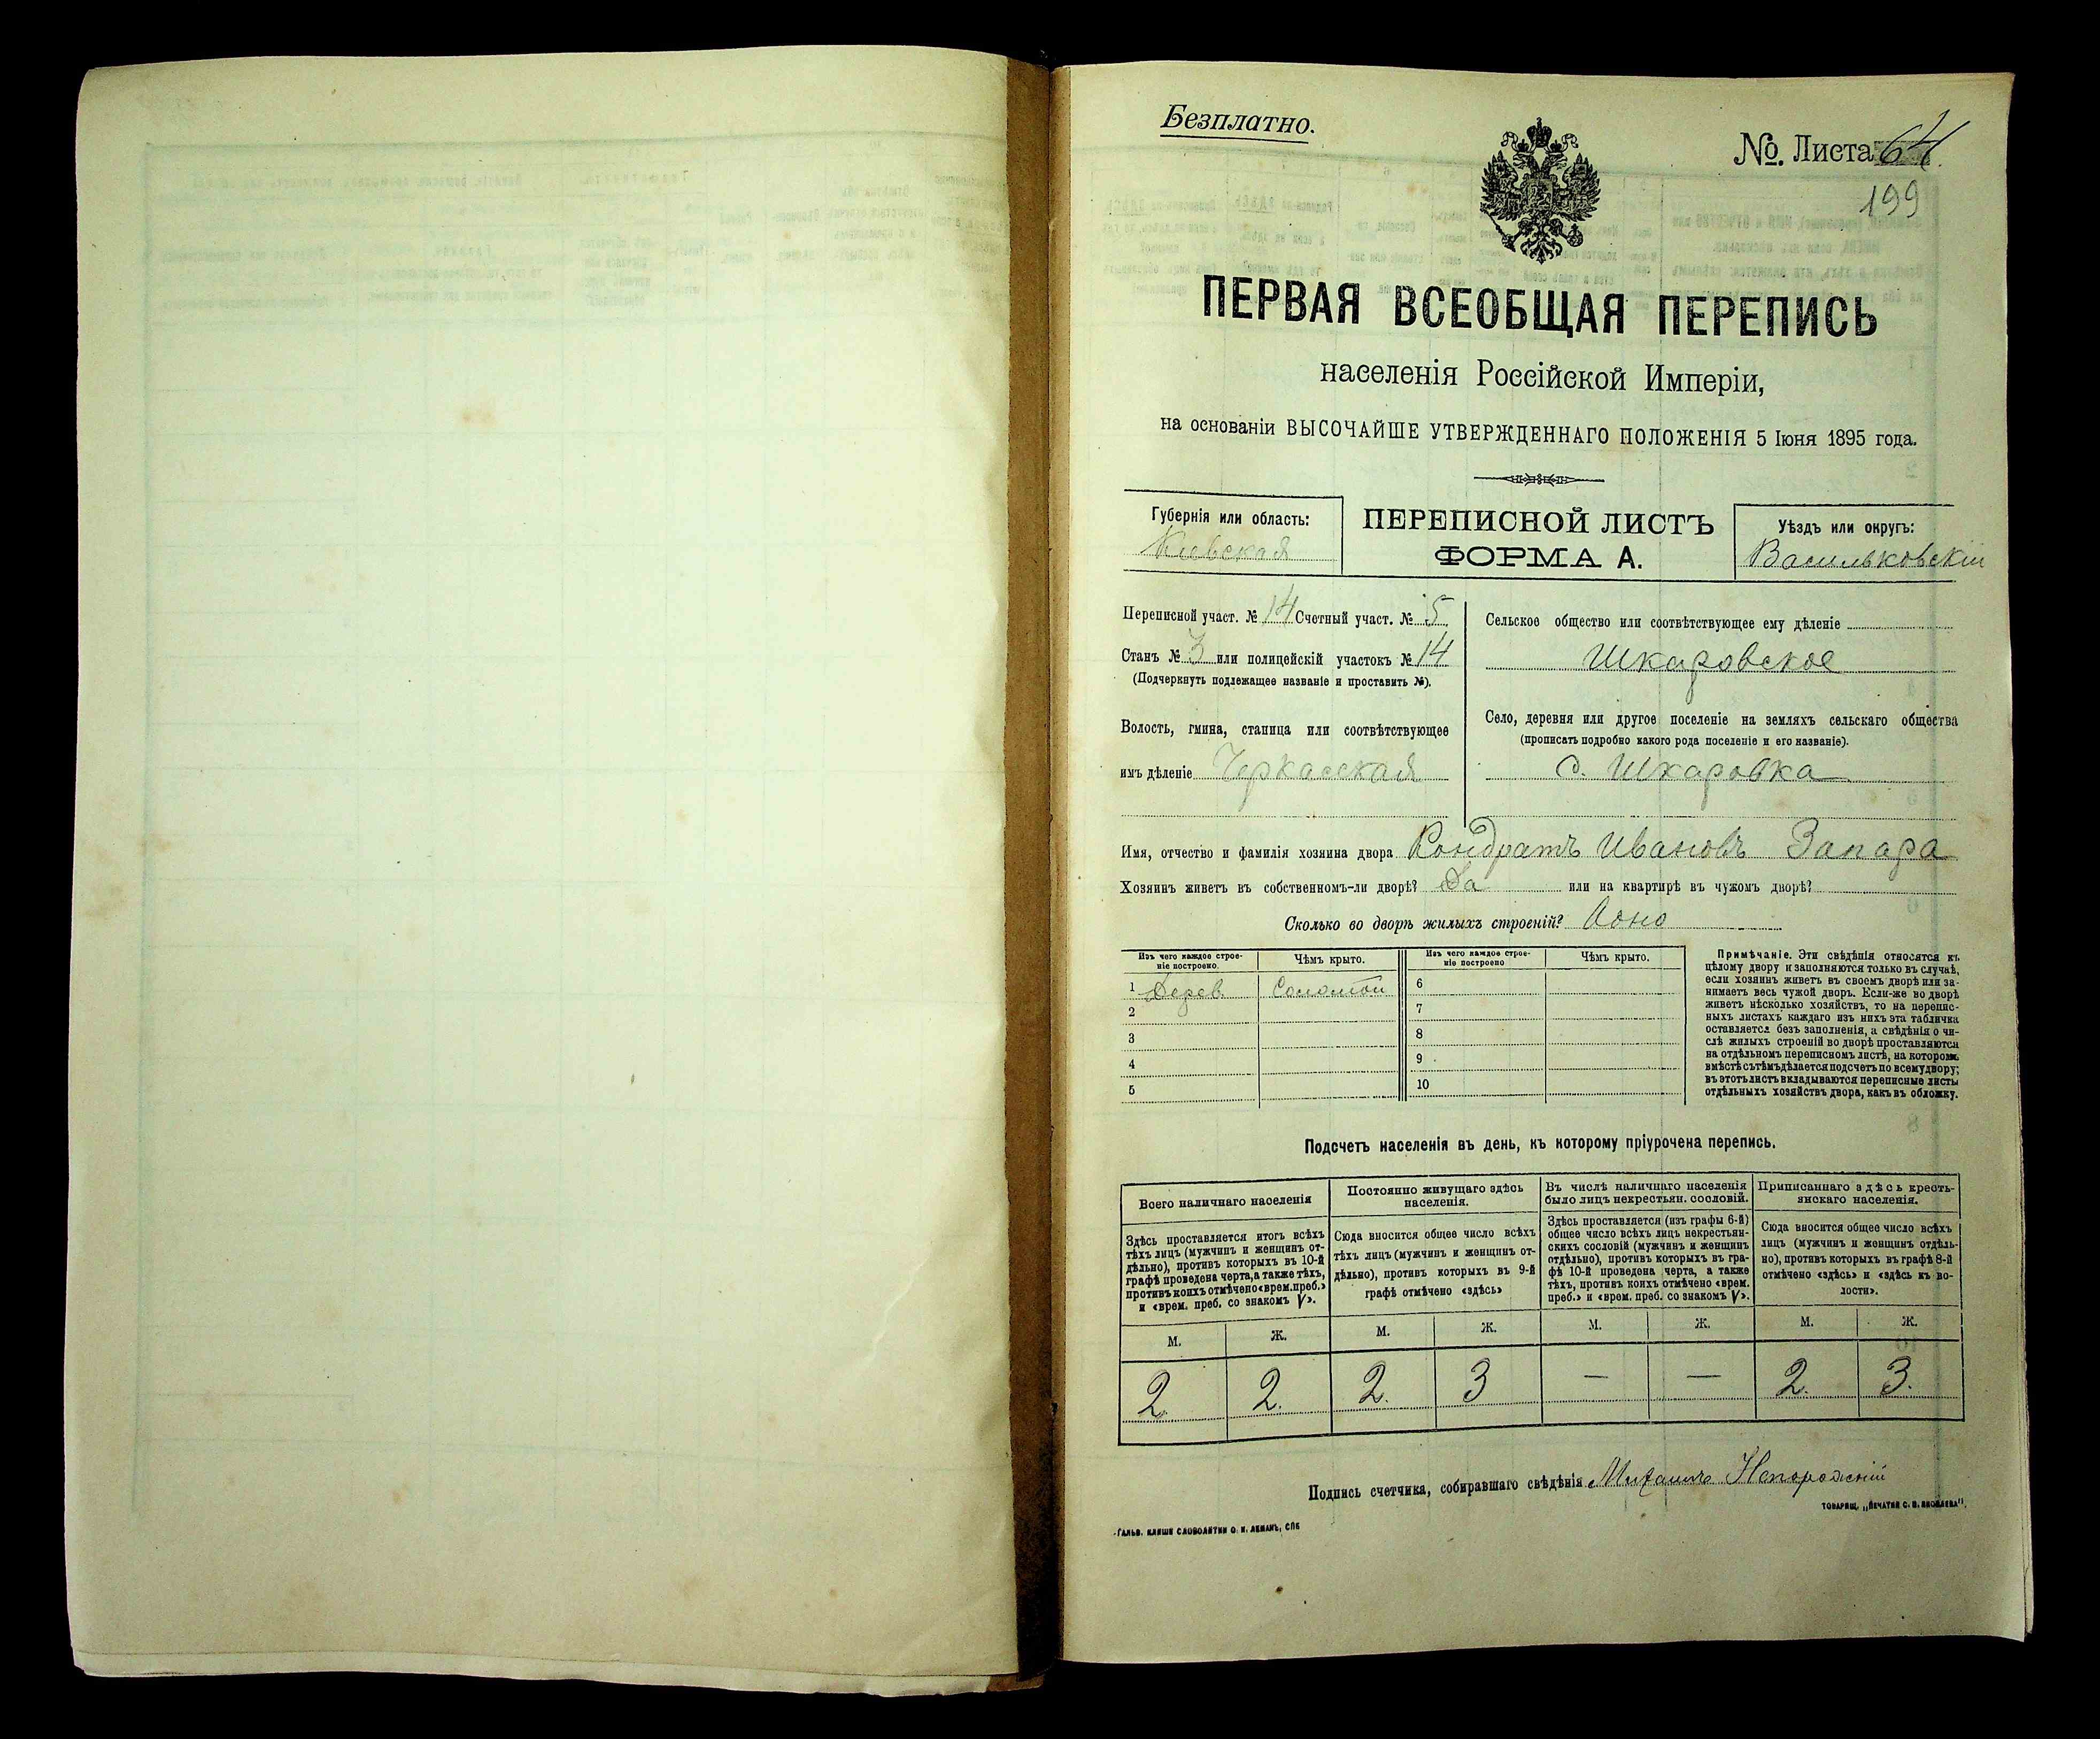 Безплатно.
№. Листа 64
199
ПЕРВАЯ ВСЕОБЩАЯ ПЕРЕПИСЬ
населенія Россійской Имперіи,
на основаніи ВЫСОЧАЙШЕ УТВЕРЖДЕННАГО ПОЛОЖЕНІЯ 5 Іюня 1895 года.
Губернія или область:
Кіевская
ПЕРЕПИСНОЙ ЛИСТЪ
ФОРМА А.
Уѣздъ или округъ:
Васильковскій
Переписной участ. № 14 Счетный участ. № 5
Станъ № 3 или полицейскій участокъ № 14
(Подчеркнуть подлежащее названіе и проставить №).
Волость, гмина, станица или соотвѣтствующее
имъ дѣленіе Черкасская
Сельское общество или соотвѣтствующее ему дѣленіе
Шкаровское
Село, деревня или другое поселеніе на земляхъ сельскаго общества
(прописать подробно какого рода поселеніе и его названіе).
с. Шкаровка
Имя, отчество и фамилія хозяина двора Кондратъ Ивановъ Запара
Хозяинъ живетъ въ собственномъ-ли дворѣ? Да или на квартирѣ въ чужомъ дворѣ?
Сколько во дворѣ жилыхъ строеній? Одно
Изъ чего каждое строе-
ніе построено.
Чѣмъ крыто.
Изъ чего каждое строе-
ніе построено
Чѣмъ крыто.
1 Дерев. Соломой 6
2 7
3 8
4 9
5 10
Примѣчаніе. Эти свѣдѣнія относятся къ
цѣлому двору и заполняются только въ случаѣ,
если хозяинъ живетъ въ своемъ дворѣ или за-
нимаетъ весь чужой дворъ. Если-же во дворѣ
живетъ нѣсколько хозяйствъ, то на перепис-
ныхъ листахъ каждаго изъ нихъ эта табличка
оставляется безъ заполненія, а свѣдѣнія о чи-
слѣ жилыхъ строеній во дворѣ проставляются
на отдѣльномъ переписномъ листѣ, на которомъ
вмѣстѣ съ тѣмъ дѣлается подсчетъ по всему двору;
въ этотъ листъ вкладываются переписные листы
отдѣльныхъ хозяйствъ двора, какъ въ обложку.
Подсчетъ населенія въ день, къ которому пріурочена перепись.
Всего наличнаго населенія
Здѣсь проставляется итогъ всѣхъ
тѣхъ лицъ (мужчинъ и женщинъ от-
дѣльно), противъ которыхъ въ 10-й
графѣ проведена черта, а также тѣхъ,
противъ коихъ отмѣчено «врем. преб.»
и «врем. преб. со знакомъ V».
Постоянно живущаго здѣсь
населенія.
Сюда вносится общее число всѣхъ
тѣхъ лицъ (мужчинъ и женщинъ от-
дѣльно), противъ которыхъ въ 9-й
графѣ отмѣчено «здѣсь»
Въ числѣ наличнаго населенія
было лицъ некрестьян. сословій.
Здѣсь проставляется (изъ графы 6-й)
общее число всѣхъ лицъ некрестьян-
скихъ сословій (мужчинъ и женщинъ
отдѣльно), противъ которыхъ въ гра-
фѣ 10-й проведена черта, а также
тѣхъ, противъ коихъ отмѣчено «врем.
преб.» и «врем. преб. со знакомъ V».
Приписаннаго здѣсь кресть-
янскаго населенія.
Сюда вносится общее число всѣхъ
лицъ (мужчинъ и женщинъ отдѣль-
но), противъ которыхъ въ графѣ 8-й
отмѣчено «здѣсь» и «здѣсь къ во-
лости».
М. Ж. М. Ж. М. Ж. М. Ж.
2. 2. 2. 3 — — 2. 3.
Подпись счетчика, собиравшаго свѣдѣнія Михаилъ
ТОВАРИЩ. „ПЕЧАТНЯ С. П. ЯКОВЛЕВА".
ГАЛЬВ. КЛИШЕ СЛОВОЛИТНИ О. И. ЛЕМАНЪ, СПБ